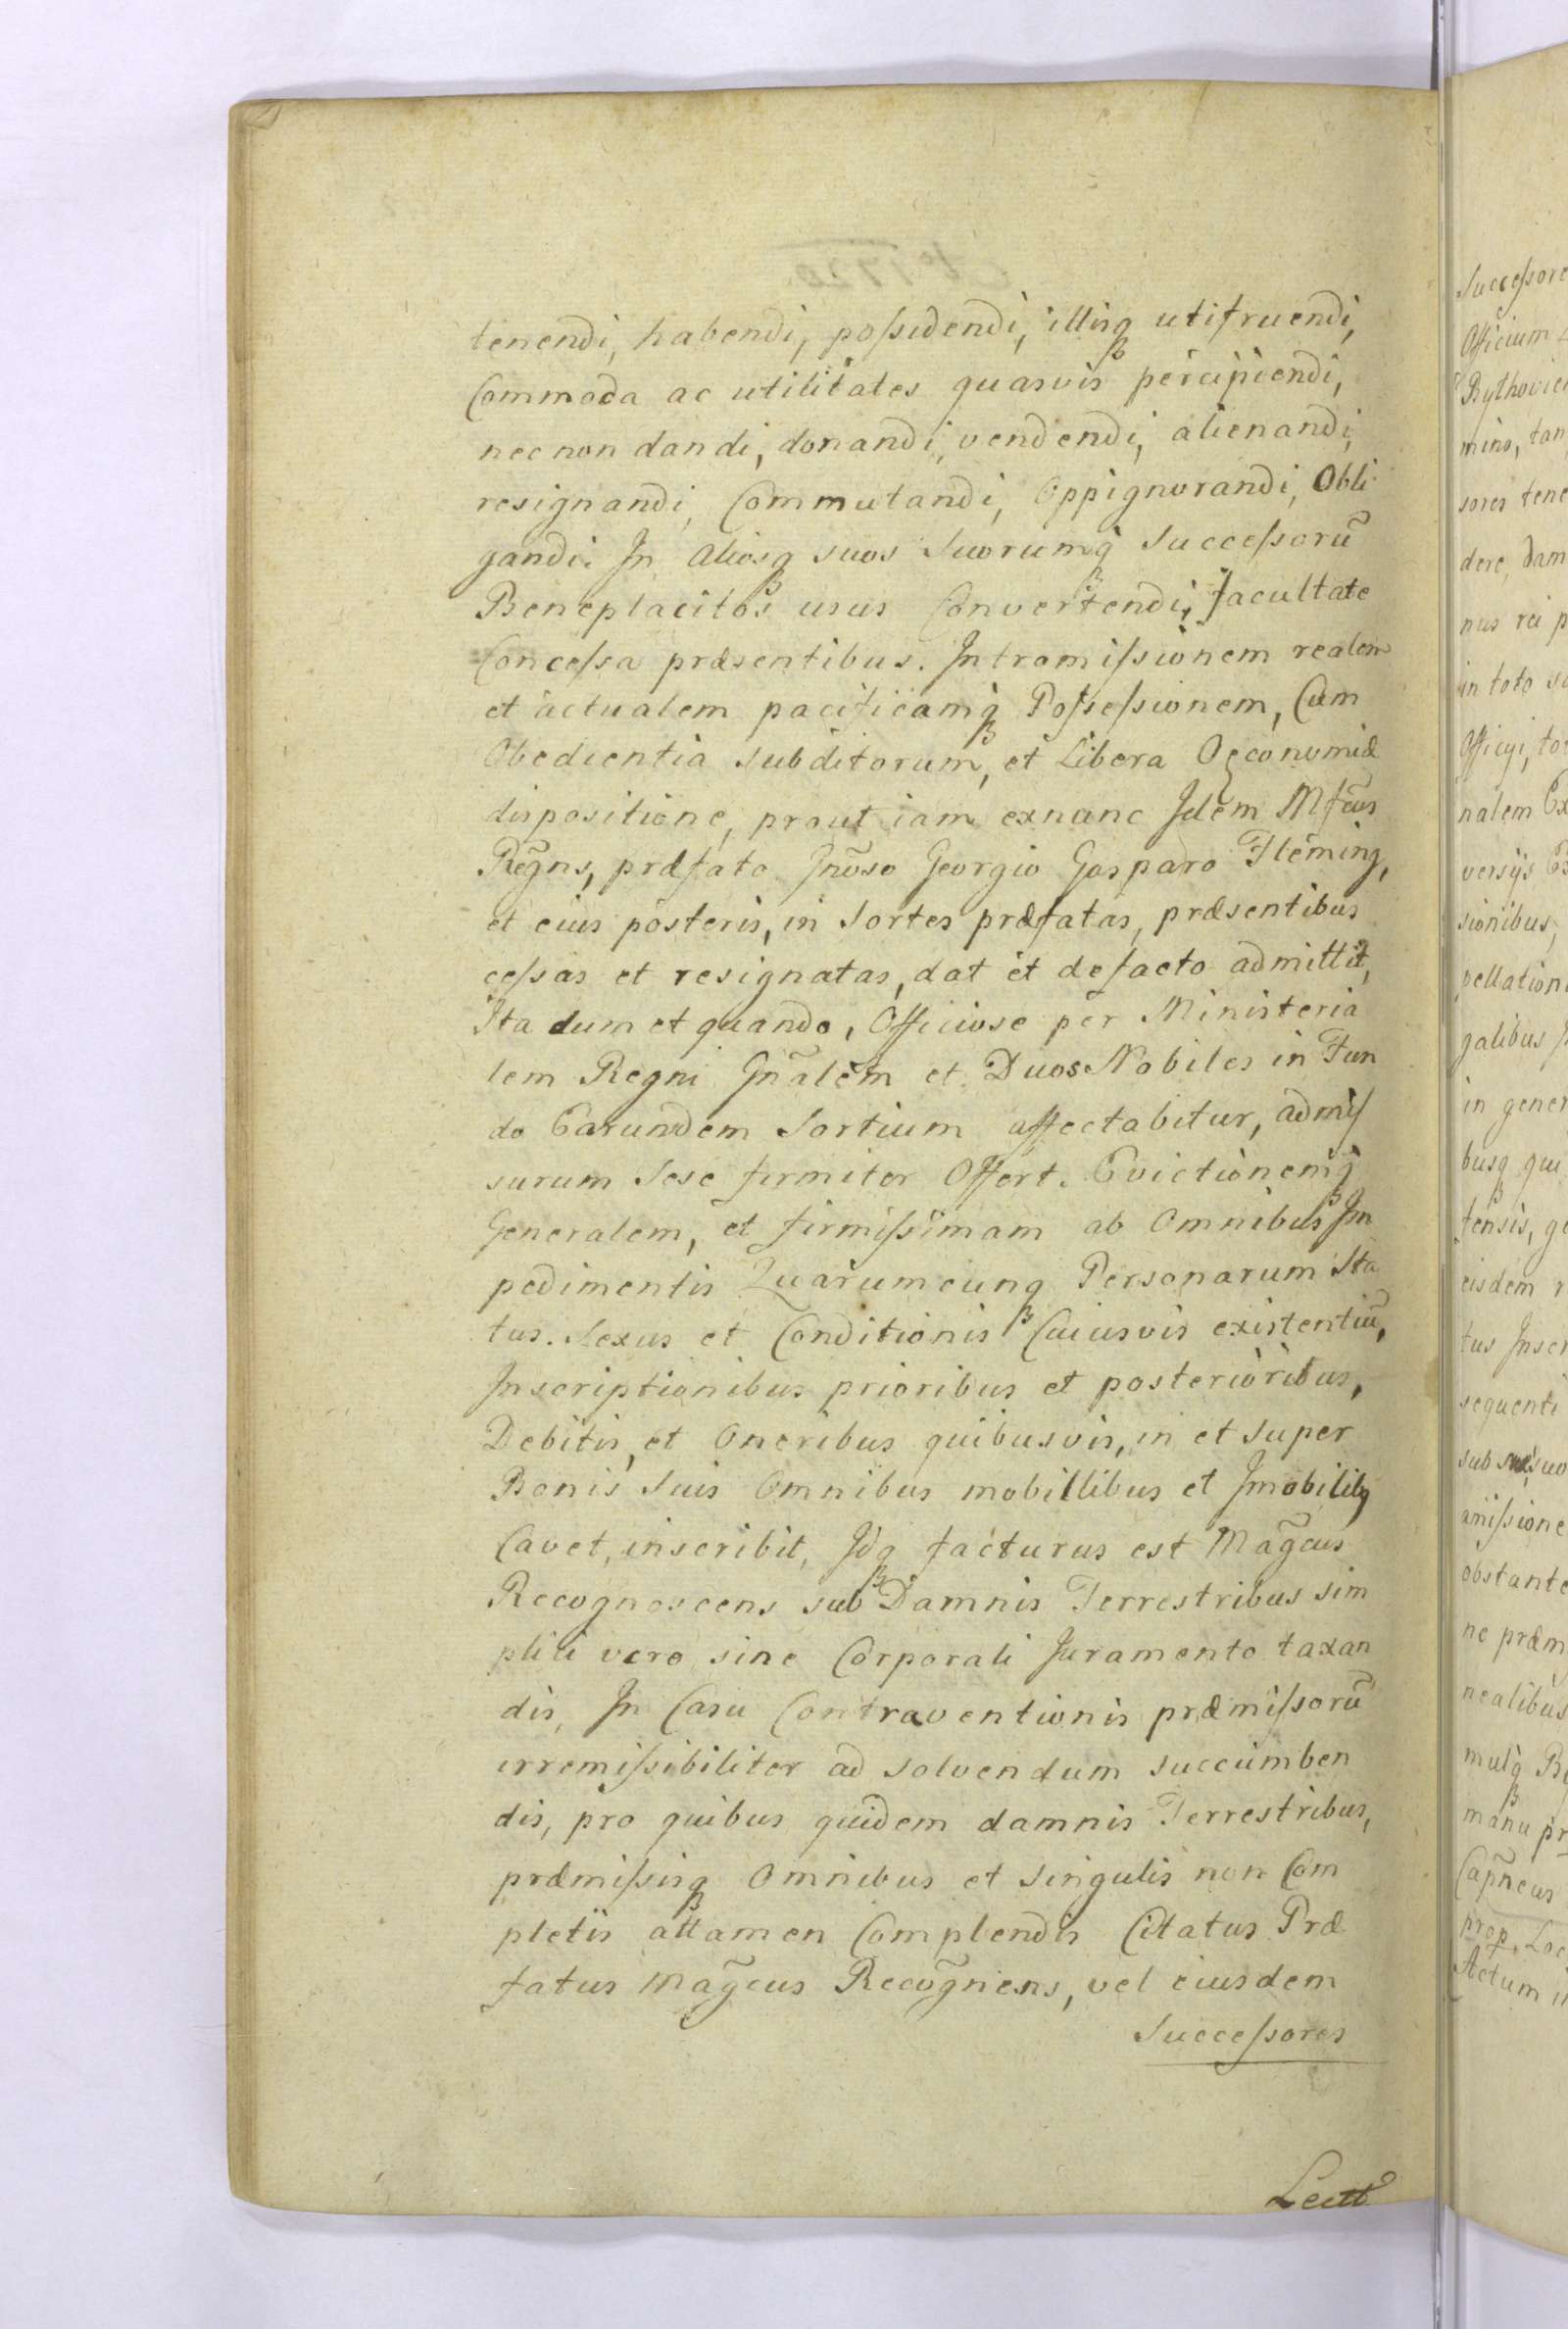 tenendi, habendi, possidendi, illisq utifruendi,
Commoda ac utilitates quasvis percipiendi,
nec non dandi, donandi, vendendi, alienandi,
resignandi, Commutandi, Oppignorandi, Obli
gandi. In aliosq suos suorumq Successorũ
Beneplacitos usus Convertendi, facultate
Concessa præsentibus. Intromissionem realem
et actualem pacificamq Possessionem, Cum
Obedientia subditorum, et Libera Oeconomiæ
dispositione, prout iam exnunc Idem Mfcus
Regns, præfato Gnoso Georgio Gasparo Fleming,
et eius posteris, in Sortes præfatas, præsentibus
cessas et resignatas, dat et defacto admittit,
Ita dum et quando, Officiose per Ministeria
lem Regni Gñalem et Duos Nobiles in Fun
do Earundem Sortium affectabitur, admis
surum Sese firmiter Offert. Evictionemq
Generalem, et firmissimam ab Omnibus Im
pedimentis Quarumcunq Personarum Sta
tus. Sexus et Conditionis Cuiusvis existentiũ,
Inscriptionibus prioribus et posterioribus,
Debitis, et Oneribus quibusvis, in et super
Bonis Suis Omnibus mobillibus et Imobilibq
Cavet, inscribit, Idq facturus est Magcus
Recognoscens sub Damnis Terrestribus sim
plici vero sine Corporali Juramento taxan
dis, In Casu Contraventionis præmissorũ
irremissibiliter ad solvendum succumben
dis, pro quibus quidem damnis Terrestribus,
præmissisq Omnibus et singulis non Com
pletis attamen Complendis Citatus Præ
fatus Magcus Recognens, vel eiusdem
Successores
Successore
Officium
Rythovie
mino, tan
sores tene
dere, dam
nus rei p
in toto s
Officyi, to
nalem Ex
versijs
sionibus,
pellation
galibus
in gener
busq qui
tensis, g
eisdem r
tus Inser
sequenti
sub suo
amissione
obstante
ne præm
nealibus
mulq
manu pr
Capneus
prop. Loc
Actum i